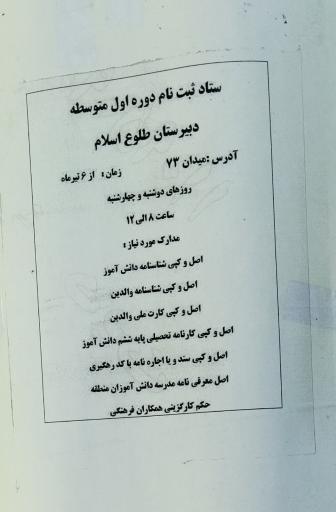 ستاد ثبت نام دوره اول متوسطه
دبیرستان طلوع اسلام
آدرس :میدان ۷۳ زمان : از ۶ تیرماه
روزهای دوشنبه و چهارشنبه
ساعت ۸ الی ۱۲
مدارک مورد نیاز :
اصل و کپی شناسنامه دانش آموز
اصل و کپی شناسنامه والدین
اصل و کپی کارت ملی والدین
اصل و کپی کارنامه تحصیلی پایه ششم دانش آموز
اصل و کپی سند و یا اجاره نامه با کد رهگیری
اصل معرفی نامه مدرسه دانش آموزان منطقه
حکم کارگزینی همکاران فرهنگی